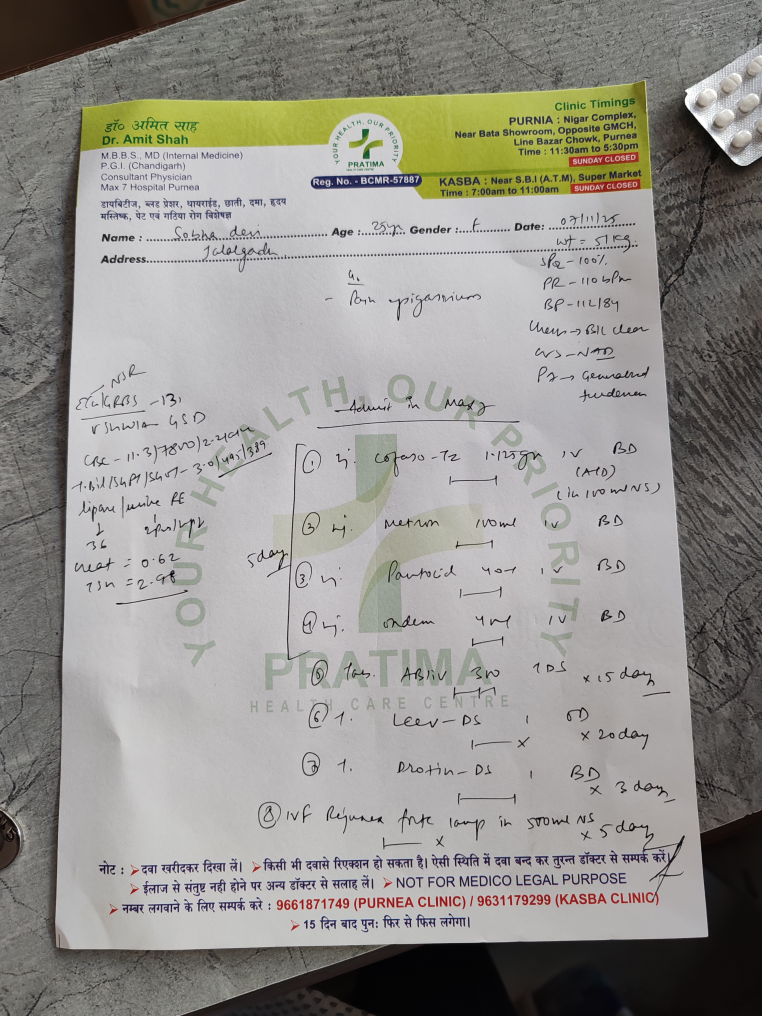 डॉ० अमित साह
Dr. Amit Shah
M.B.B.S., MD (Internal Medicine)
P.G.I. (Chandigarh)
Consultant Physician
Max 7 Hospital Purnea
डायबिटीज, ब्लड प्रेशर, थायराईड, छाती, दमा, हृदय
मस्तिष्क, पेट एवं गठिया रोग विशेषज्ञ
YOUR HEALTH, OUR PRIORITY
PRATIMA
HEALTH CARE CENTRE
Reg. No. - BCMR-57887
Clinic Timings
PURNIA : Nigar Complex,
Near Bata Showroom, Opposite GMCH,
Line Bazar Chowk, Purnea
Time : 11:30am to 5:30pm
SUNDAY CLOSED
KASBA : Near S.B.I (A.T.M), Super Market
Time : 7:00am to 11:00am SUNDAY CLOSED
Name : Sobha devi Age : 25yr Gender : F Date: 07/11/25
Address Jalalgadh
wt = 51 kg.
SPO2 - 100%
PR - 110 bpm
BP - 112/84
Chest → B/L clear
CVS - NAD
P/A → Generalised
- Pain epigastrium
NSR
ECG/GRBS - 131
USG W/A GSD
CBC - 11.3/7800/
T.Bil/SGPT/SGOT - 3.0/495/389
lipase/urine RE
36
creat = 0.62
TSH = 2.98
Admit in Max 7
5 day
① Inj. Cefaso-Tz 1.125gm IV BD
(in 100 ml NS)
② Inj. Metron 100ml IV BD
③ Inj. Pantocid 40 IV BD
④ Inj. Ondem 4 IV BD
⑤ Tab. ABliv 300 TDS x 15 day
⑥ T. Leev-DS 1 OD x 20 day
⑦ T. Drotin-DS 1 BD x 3 day
⑧ IVF Rejunex forte 1 amp in 500ml NS x 5 day
YOUR HEALTH, OUR PRIORITY
PRATIMA
HEALTH CARE CENTRE
नोट : दवा खरीदकर दिखा लें। किसी भी दवासे रिएक्शन हो सकता है। ऐसी स्थिति में दवा बन्द कर तुरन्त डॉक्टर से सम्पर्क करें।
ईलाज से संतुष्ट नही होने पर अन्य डॉक्टर से सलाह लें। NOT FOR MEDICO LEGAL PURPOSE
नम्बर लगवाने के लिए सम्पर्क करे : 9661871749 (PURNEA CLINIC) / 9631179299 (KASBA CLINIC)
15 दिन बाद पुनः फिर से फिस लगेगा।